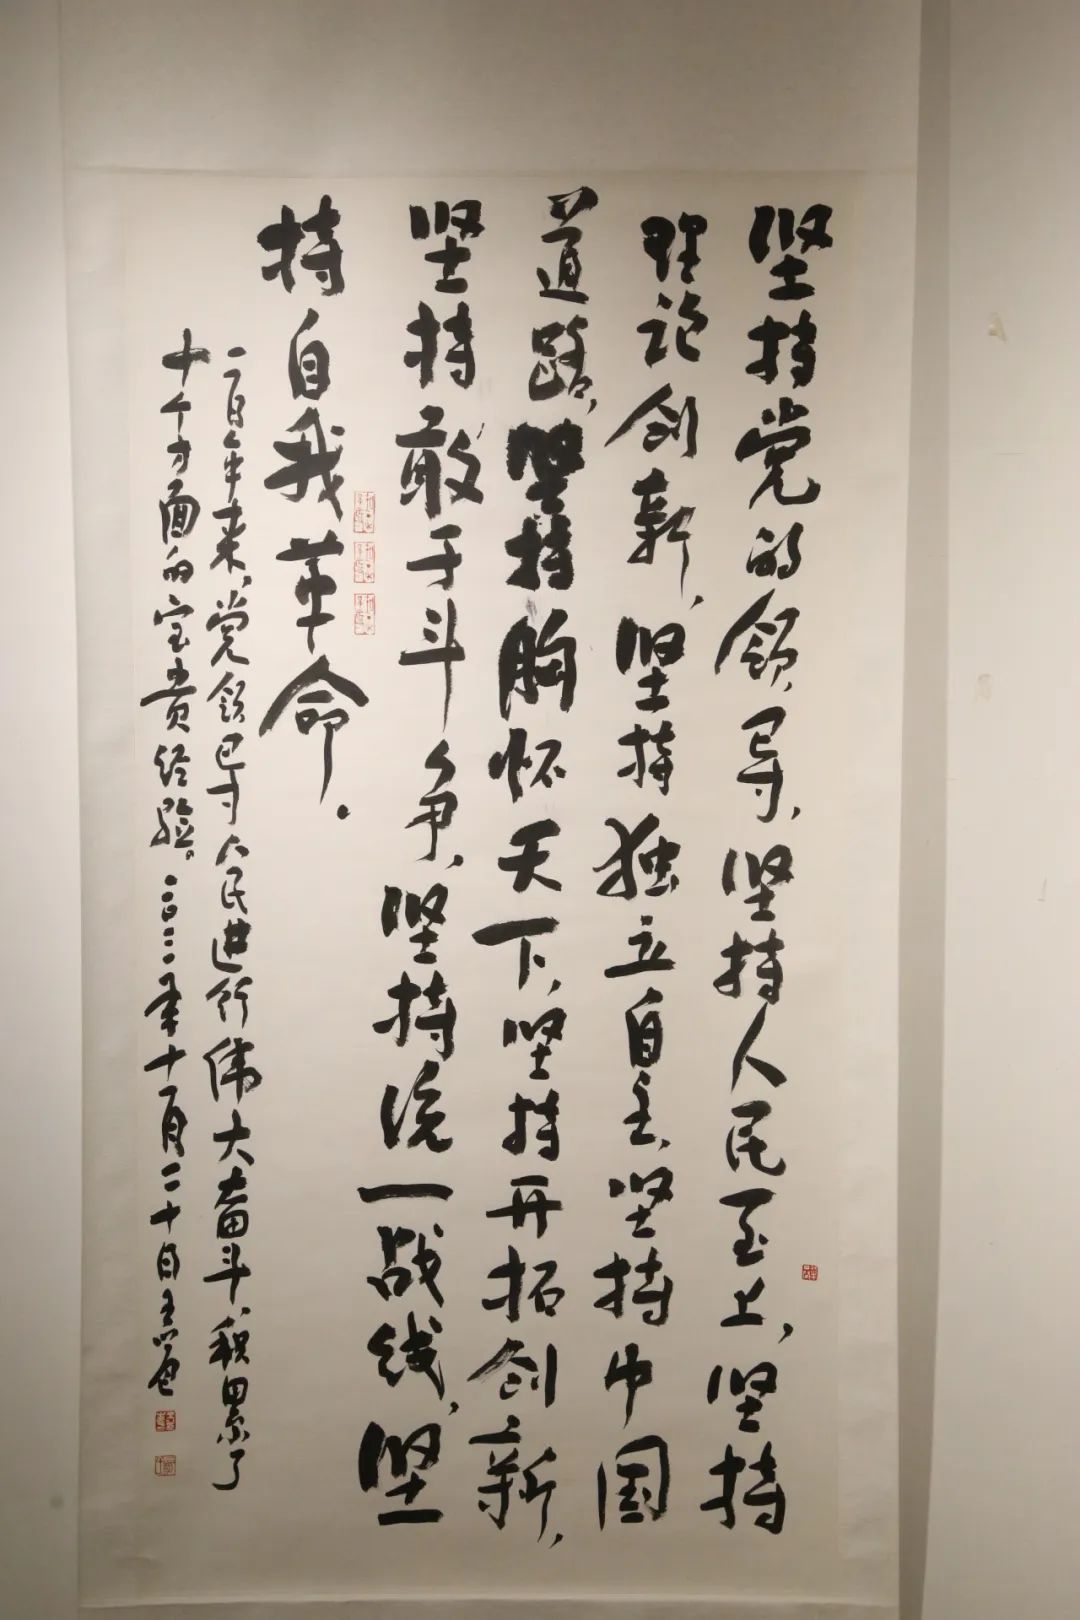 坚持党的领导，坚持人民至上，坚持
理论创新，坚持独立自主，坚持中国
道路，坚持胸怀天下，坚持开拓创新，
坚持敢于斗争，坚持统一战线，坚
持自我革命。
一百年来，党领导人民进行伟大奋斗，积累了
十个方面的宝贵经验。年十一月二十日